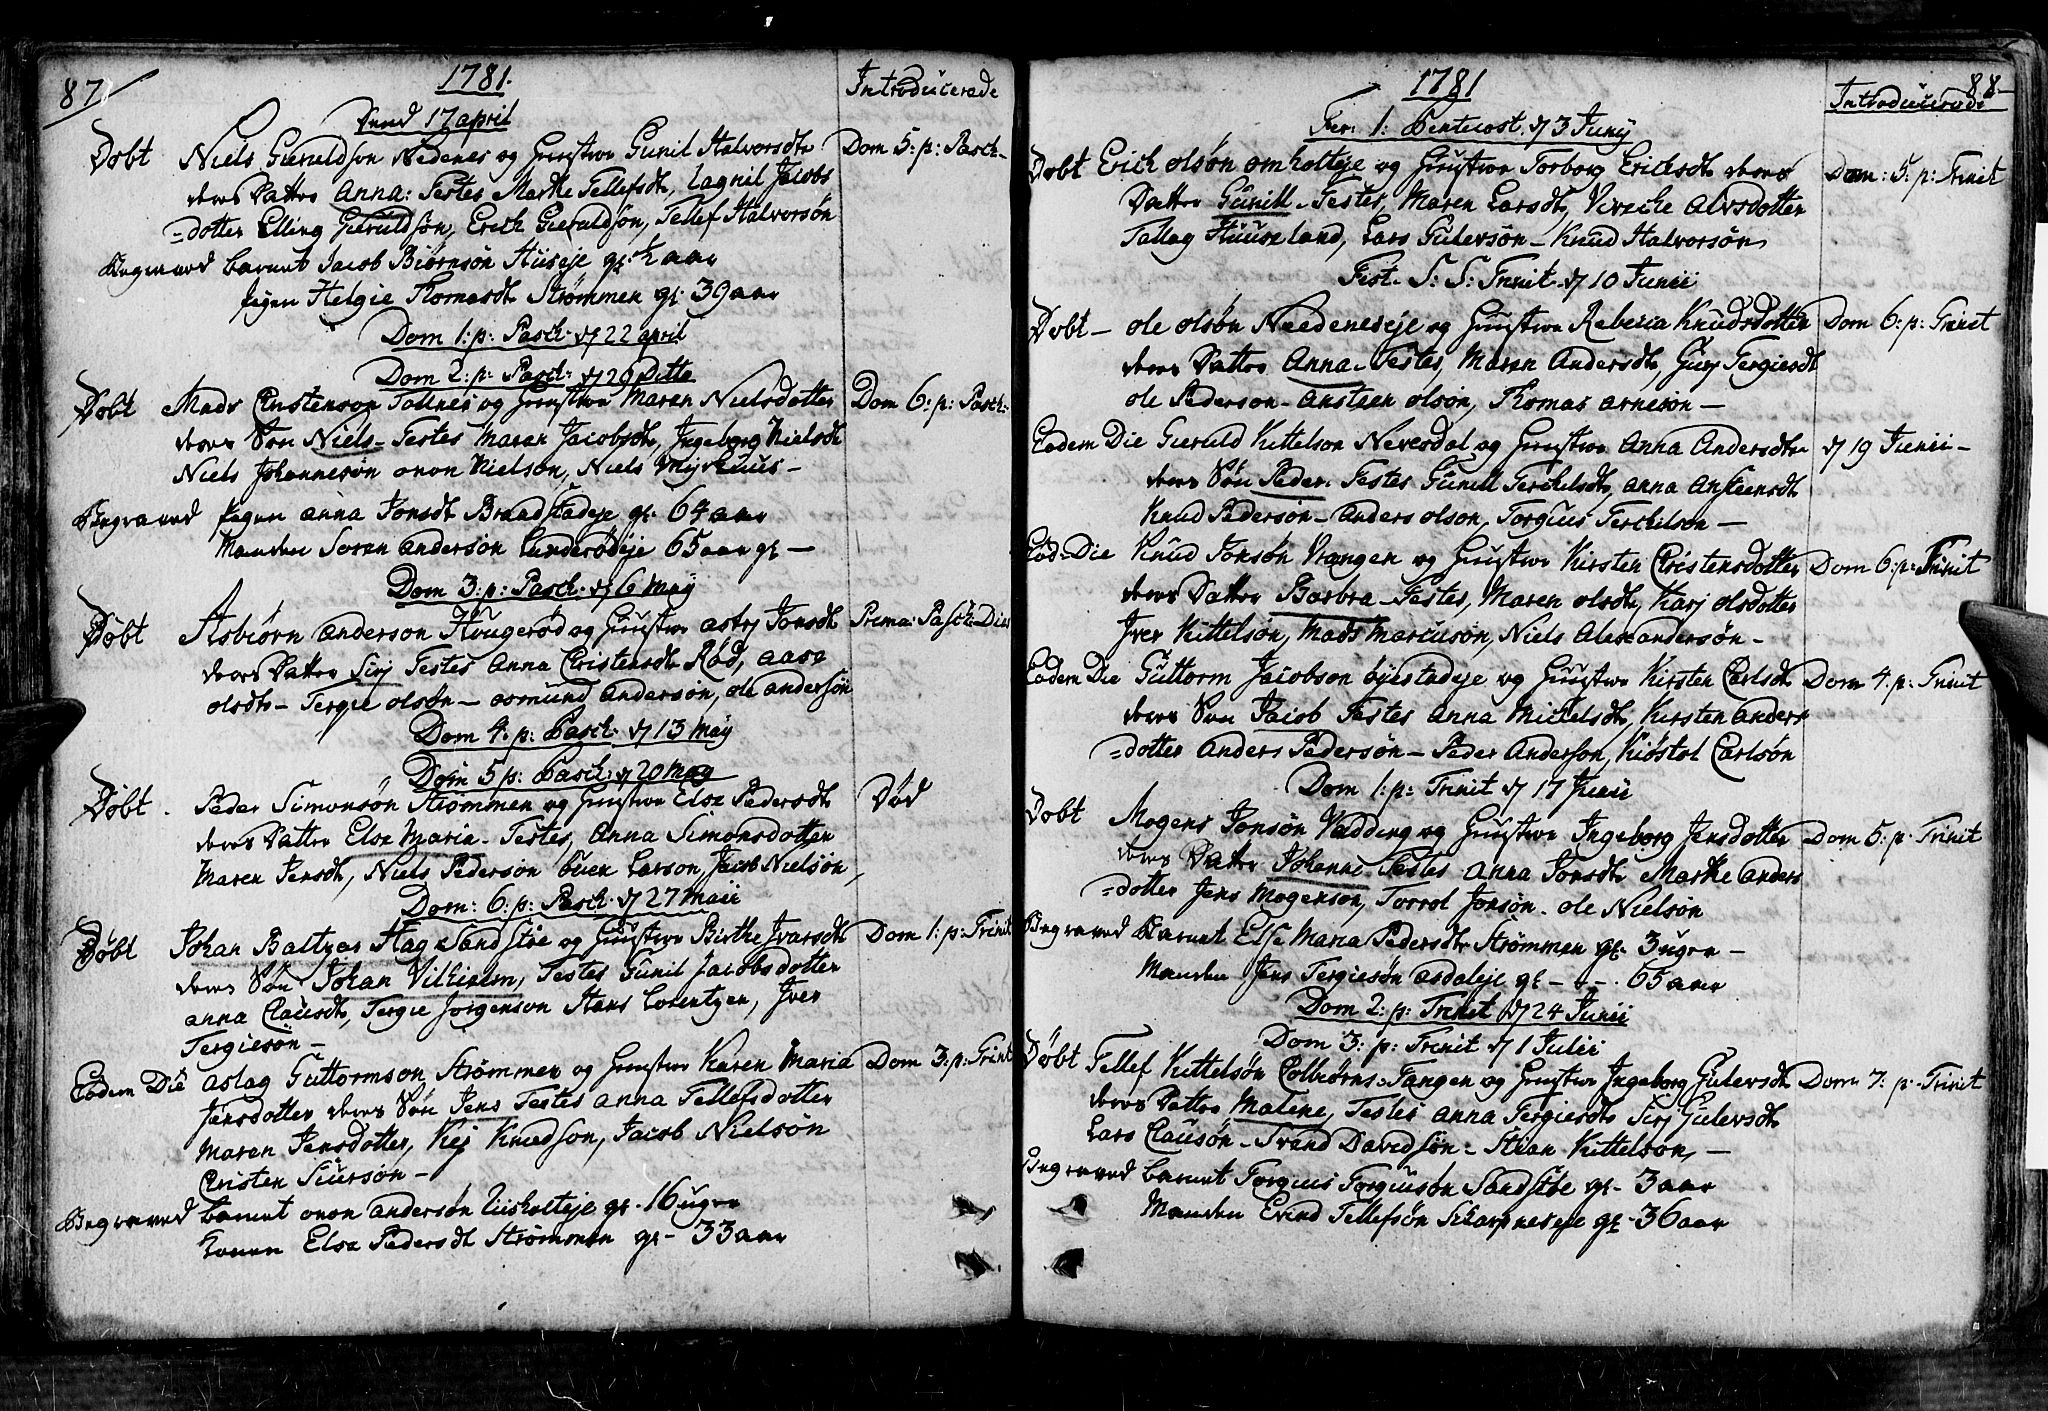 87
1781.
Introducerade
Dend 17 april
Döbt Niels Gieruldsøn Nedenes og Hustroe Gunil Halvorsdt Dom 5: p: Pasch-
deres Datter Anna: Testes Marthe Tellefsdt, Lagnil Jacobs
=dotter Elling Gieruldsøn, Erich Gieruldsøn, Tellef Halvorsøn
Begraved barnet Jacob Biørnsøn Huseje gl: ½ aar
Pigen Helgie Thomasdt Strømmen gl: 39 aar
Dom 1: p: Pasch: d 22 april
Dom 2: p: Pasch: d 29 Ditto
Döbt Mads Christensøn Tollnes og Hustroe Maren Nielsdotter Dom 6: p: Pasch:
deres Søn Niels- Testes Maren Jacobsdt, Ingeborg Nielsdt
Niels Johannesøn onon Nielson, Niels Myrhuus-
Begraved Pigen anna Jonsdt Braadstadeje gl- 64 aar
Manden Søren Andersøn Lunderødeje 65 aar gl-
Dom 3: p: Pasch: d 6 May
Döbt Asbiørn Anderson Hougerød og Hustroe astrj Jonsdt Prima: Pasch: Die
deres Datter Sirj Testes Anna Christensdt Rød, aase
olsdt- Tergie olsøn- osmund Andersøn, ole andersøn
Dom 4: p: Pasch: d 13 May
Dom 5 p: Pasch: d 20 May
Döbt. Peder Simonsøn Strømmen og Hustroe Else Pedersdt Død
deres Datter Else Maria- Testes, Anna Simonsdotter
Maren Jensdt, Niels Pedersøn Ouen Larson, Jacob Nielsøn,
Dom: 6: p: Pasch: d 27 Maii
Döbt Johan Baltzar Hag Sandstøe og Hustroe Birthe Ivarsdt Dom 1: p: Trinit
deres Søn Johan Vilhielm, Testes Gunil Jacobsdotter
anna Clausdt, Tergie Jørgenson Hans Lorentzen, Iver
Tergiesøn-
Eodem Die aslag Guttormson Strømmen og Hustroe Karen Maria Dom 3: p: Trinit
Jensdotter deres Søn Jens Testes anna Tellefsdotter
Maren Jensdotter, Kej Knudson, Jacob Nielsøn
Christen Siursøn-
Begraved barnet onon andersøn Uiskolteje gl- 16 uger
Konen Else Pedersdt Strømmen gl- 33 aar
88-
1781
Introducerade
Fer: 1: Pentecost. d 3 Junij
Döbt Erich olsøn omholteje og Hustroe Torborg Erichsdt deres Dom: 5: p: Trinit
Datter Gunill- Testes, Maren Larsdt, Viveche alvsdotter
Tallag Huuseland, Lars Gulersøn- Knud Halvorsøn
Fest. S: S: Trinit- d 10 Junii
Döbt- ole olsøn Nædeneseje og Hustroe Rebecca Knudsdotter Dom 6: p: Trinit
deres Datter Anna- Testes, Maren Andersdt, Gurj Tergiesdt
ole Pederson- Ansteen olsøn, Thomas arneson-
Eodem Die Gieruld Kittelson Nevesdal og Hustroe Anna Andersdtr d 19 Junii-
deres Søn Peder. Testes Gunill Terchelsdt, anna Ansteensdt
Knud Pedersøn- Anders olson, Torgius Terchilson-
Eod-Die Knud Jonsøn Vrangen og Hustroe Kirsten Christensdotter Dom 6: p: Trinit
deres Datter Barbra- Testes, Maren olsdt, Karj olsdotter
Iver Kittelsøn, Mads Marcusøn, Niels Alexandersøn-
Eodem Die Guttorm Jacobson byestadeje og Hustroe Kirsten Carlsdt Dom 4: p: Trinit
deres Søn Jacob Testes Anna Michelsdt, Kirsten Anders
=dotter Anders Pedersøn- Peder Anderson, Kiøstol Carlsøn
Dom 1: p: Trinit d 17 Junii
Döbt Mogens Jonsøn Vadding og Hustroe Ingeborg Jensdotter Dom 5: p: Trinit
deres Datter Johanne Testes anna Jonsdt Marthe Anders
=dotter Jens Mogenson, Torrol Jonsøn. ole Nielsøn
Begraved Barnet Else Maria Pedersdt Strømmen gl- 3 uger-
Manden Jens Tergiesøn asdaleje gl- - - . 65 aar
Dom 2: p: Trinit d 24 Junii
Dom 3: p: Trinit d 1 Julii
Döbt Tellef Kittelsøn Colbiørns-Tangen og Hustroe Ingeborg Gulersdt Dom 7: p- Trinit
deres Datter Malene, Testes anna Tergiesdt Sirj Gulersdt
Lars Clausøn- Trand Davidsøn- Stian Kittelson,-
Begraved barnet Torgius Torgiusøn Sandstøe gl- 3 aar
Manden Evind Tellefsøn Skarpneseje gl- 36 aar